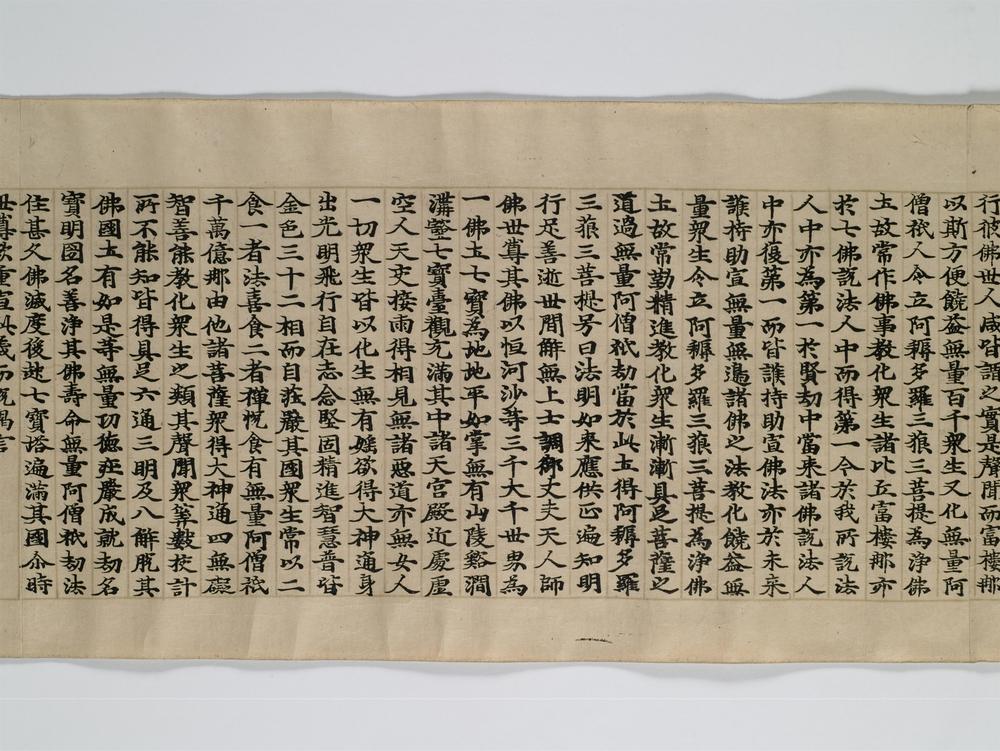 行彼佛世人咸皆謂之實是聲聞而富樓那
以斯方便饒益無量百千衆生又化無量阿
僧祇人令立阿耨多羅三藐三菩提為淨佛
土故常作佛事教化衆生諸比丘富樓那亦
於七佛說法人中而得第一今於我所說法
人中亦為第一於賢劫中當来諸佛說法人
中亦復第一而皆護持助宣佛法亦於未来
護持助宣無量無邊諸佛之法教化饒益無
量衆生令立阿耨多羅三藐三菩提為淨佛
土故常勤精進教化衆生漸漸具足菩薩之
道過無量阿僧祇劫當於此土得阿耨多羅
三藐三菩提号曰法明如来應供正遍知明
行足善逝世間解無上士調御丈夫天人師
佛世尊其佛以恒河沙等三千大千世界為
一佛土七寶為地地平如掌無有山陵谿澗
溝壑七寶臺觀充滿其中諸天宮殿近處虛
空人天交接兩得相見無諸惡道亦無女人
一切衆生皆以化生無有婬欲得大神通身
出光明飛行自在志念堅固精進智慧普皆
金色三十二相而自莊嚴其國衆生常以二
食一者法喜食二者禪悅食有無量阿僧祇
千萬億那由他諸菩薩衆得大神通四無礙
智善能教化衆生之類其聲聞衆筭數校計
所不能知皆得具足六通三明及八解脫其
佛國土有如是等無量功德莊嚴成就劫名
寶明國名善淨其佛壽命無量阿僧祇劫法
住甚久佛滅度後起七寶塔遍滿其國尒時
世尊欲重宣此義而說偈言